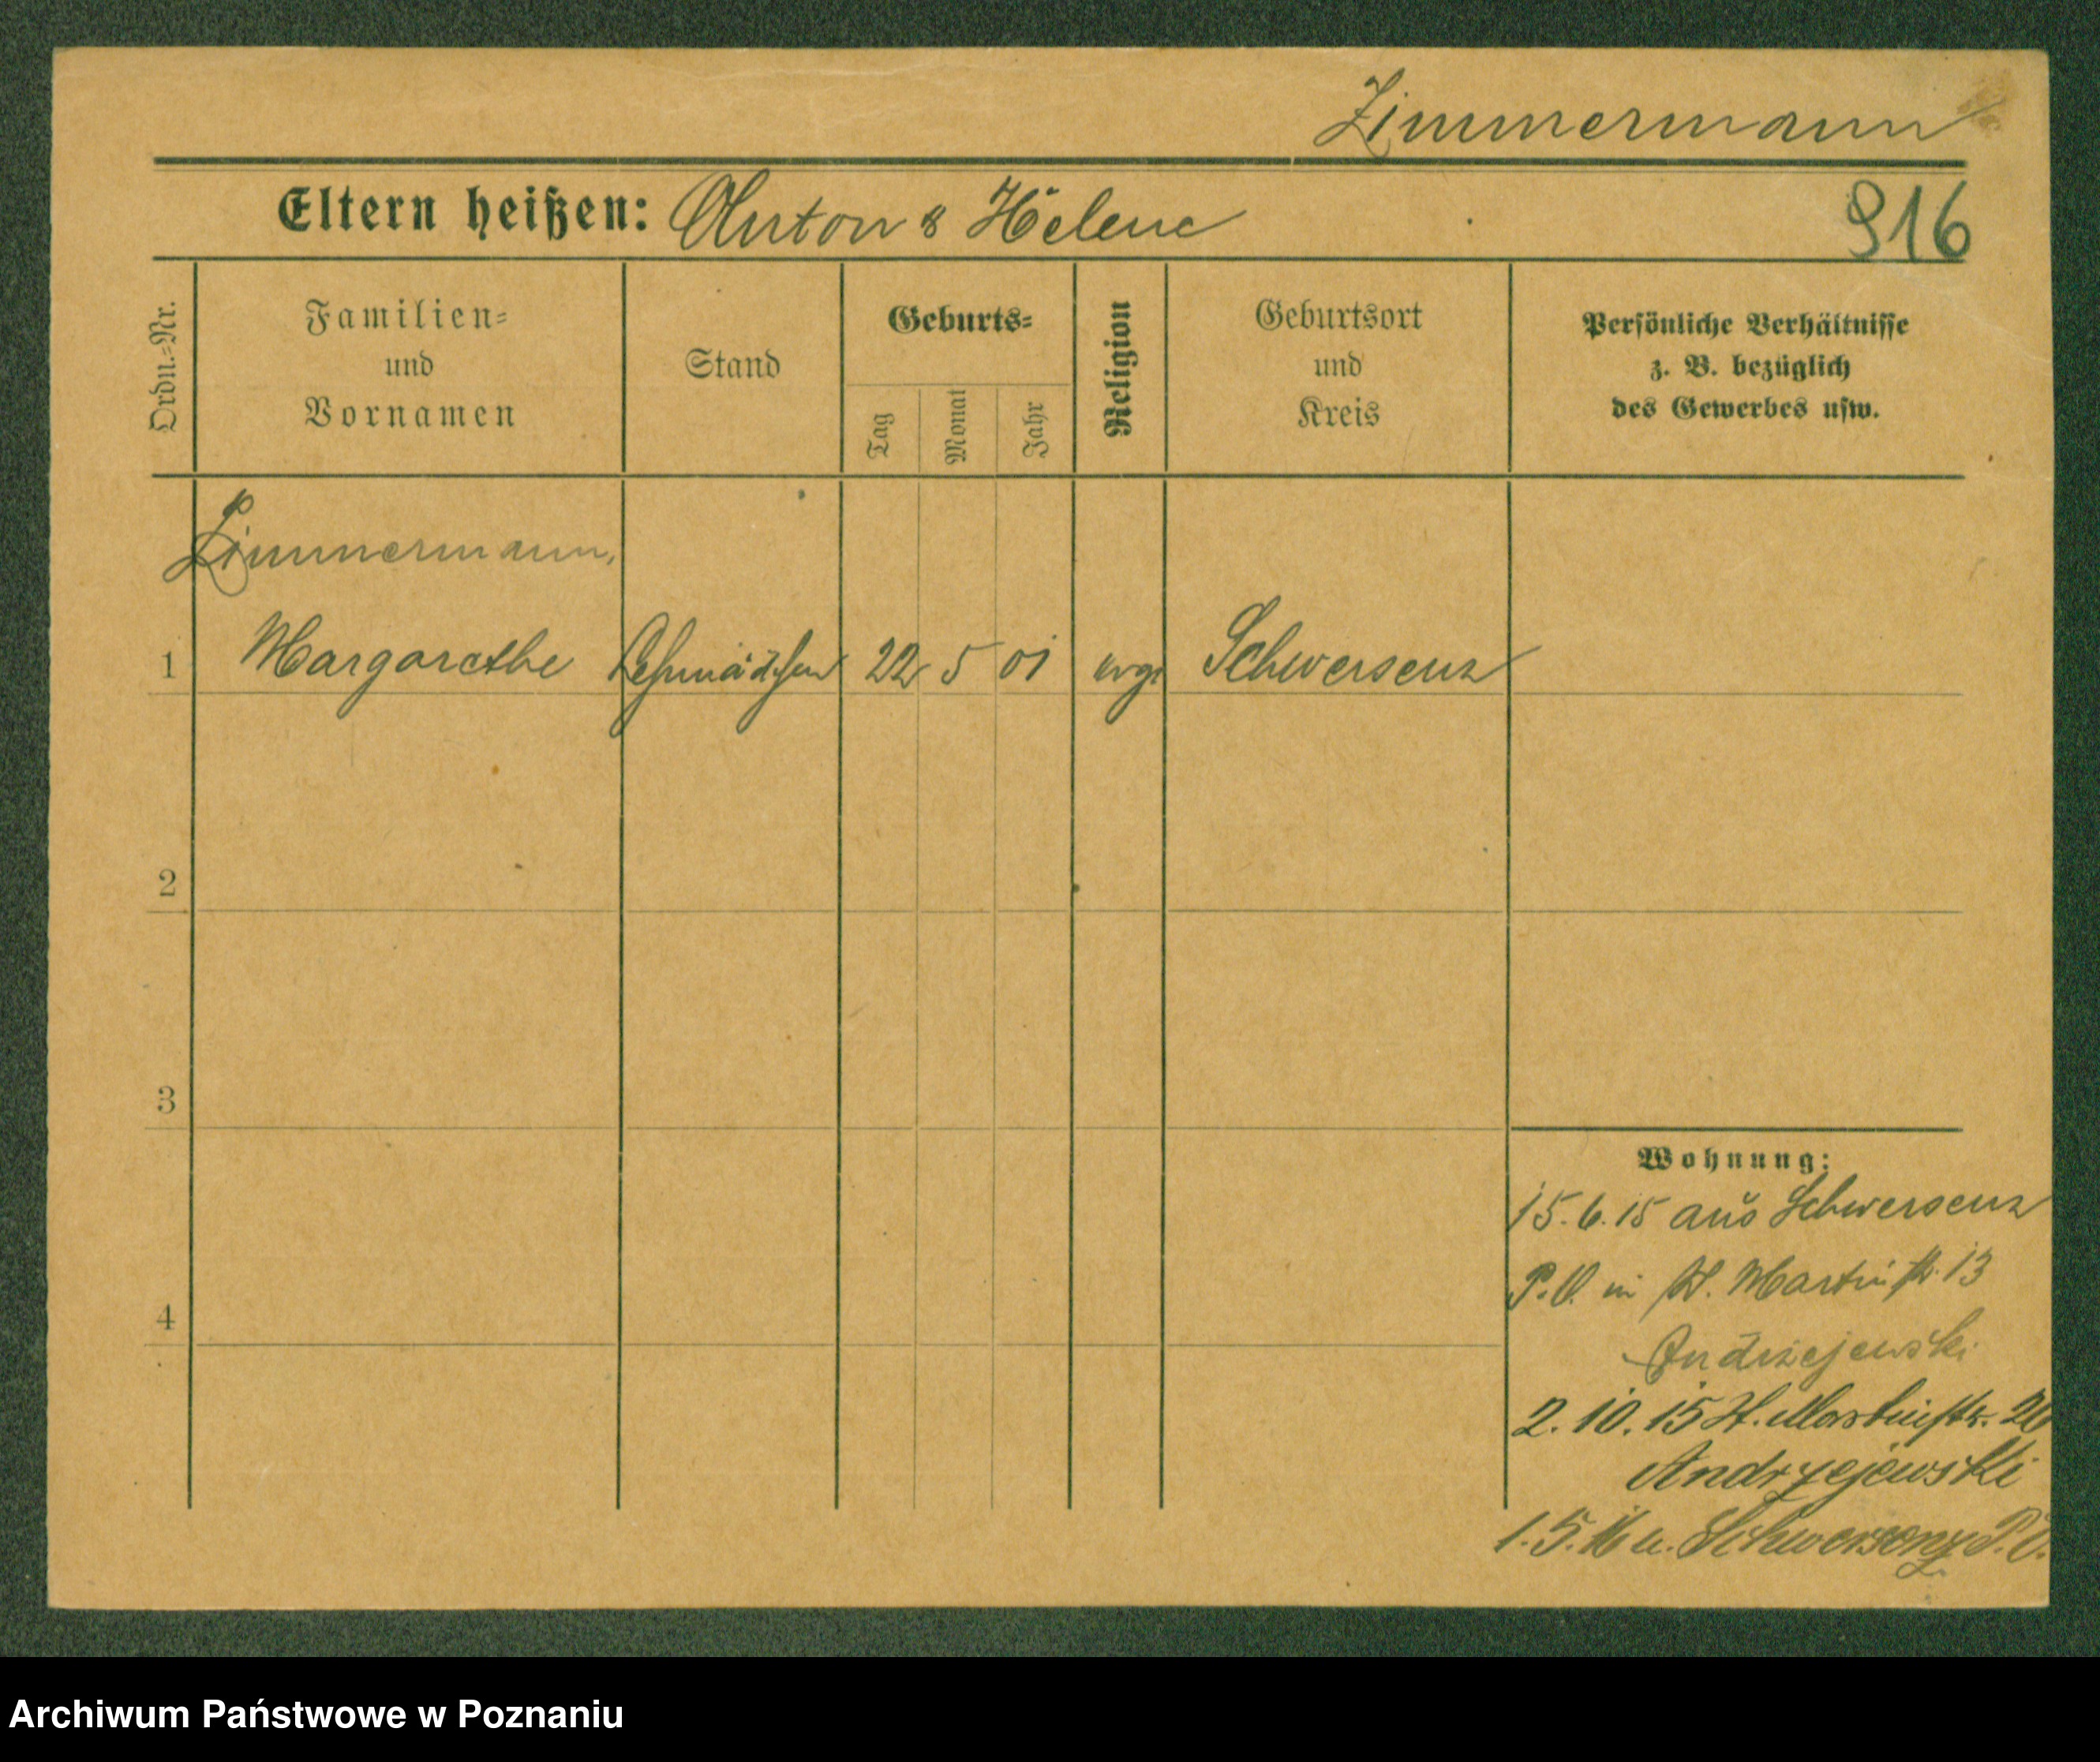 Zimmermann
Eltern heißen: Anton & Helene
916
Ordn.=Nr.
Familien=
und
Vornamen
Stand
Geburts=
Tag
Monat
Jahr
Religion
Geburtsort
und
Kreis
Persönliche Verhältnisse
z. B. bezüglich
des Gewerbes usw.
Zimmermann,
1 Margarethe Lehrmädchen 22 5 01 evgl Schwersenz
2
3
4
Wohnung:
15.6.15 aus Schwersenz
P.O. in St. Martinstr. 13
Andrzejewski
2.10.15 St. Martinstr. 26
Andrzejewski
1.5.16 n. Schwersenz P.O.
Archiwum Państwowe w Poznaniu